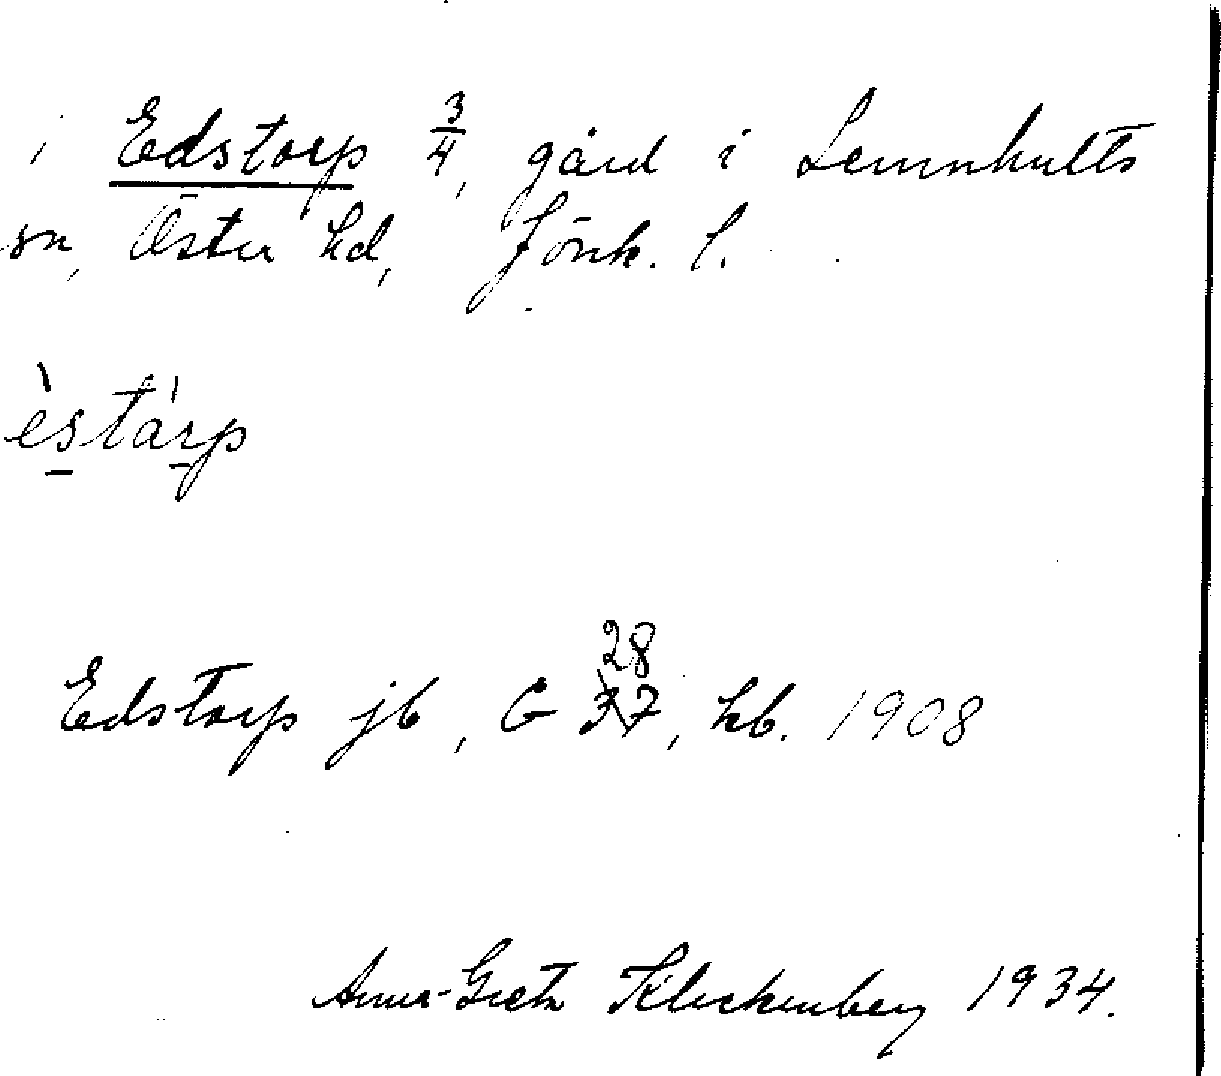 i Edstorp 3/4, gård i Lemnhults
sn, Öster hd, Jönk. l.
èstàrp
28
Edstorp jb, G 37, hb. 1908
Anna-Greta Klockenberg 1934.